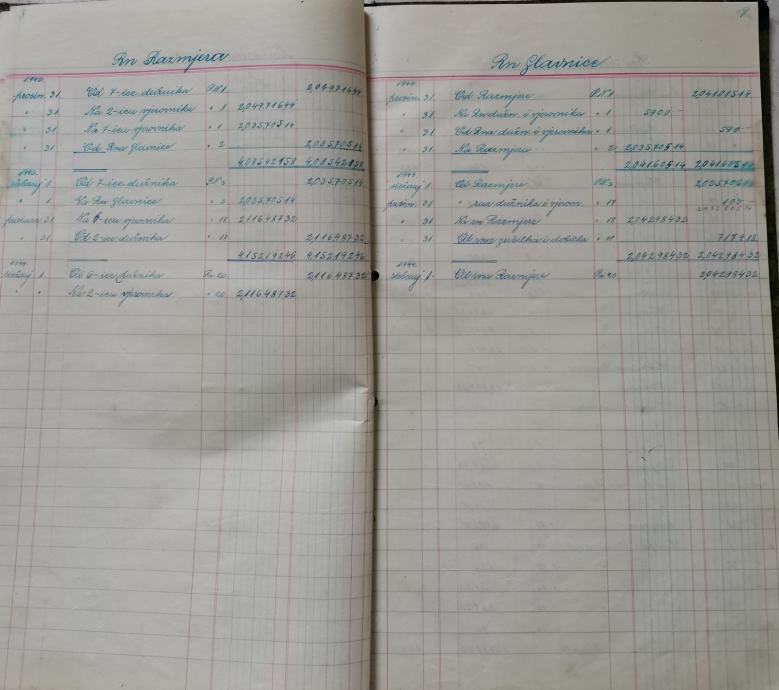 Rn Razmjera
1942.
prosin. 31. Od 7-ice dužnika P.K.1 2,049.716.44
" 31. Na 2-icu vjerovnika " 1 2,049.716.44
" 31. Na 7-icu vjerovnika " 1 2,035.705.14
" 31. Od Rna Glavnice " 2 2,035.705.14
4,085.421.58 4,085.421.58
1943.
siečanj 1. Od 7-ice dužnika P.K.3 2,035.705.14
" 1. Na Rn Glavnice " 3 2,035.705.14
prosinca 31. Na 6-icu vjerovnika " 18 2,116.487.32
" 31. Od 2-ice dužnika " 18 2,116.487.32
4,152.192.46 4,152.192.46
1944.
siečanj 1. Od 6-ice dužnika Pr. 20 2,116.487.32
" " Na 2-icu vjerovnika " 20 2,116.487.32
2
Rn Glavnice
prosin. 31. Od Razmjere P.K.1 2,041.015.14
" 31. Na Rn dužn. i vjerovnika " 1 5900.-
" 31. Od Rna dužn. i vjerovnika " 1 590.-
" 31. Na Razmjeru " 2 2,035.705.14
2,041.605.14 2,041.605.14
1943.
siečanj 1. Od Razmjere P.K.3 2,035.705.14
prosin. 31. " rna dužnika i vjerov. " 17
" 31. Na rn Razmjere " 18 2,042.984.32
" 31. Od rna gubitka i dobitka
2,042.984.32 2,042.984.32
1944.
siečanj 1. Od rna Razmjere Pr. 20 2,042.984.32